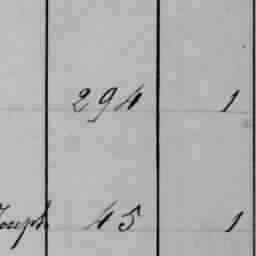 294 1
Joseph 45 1